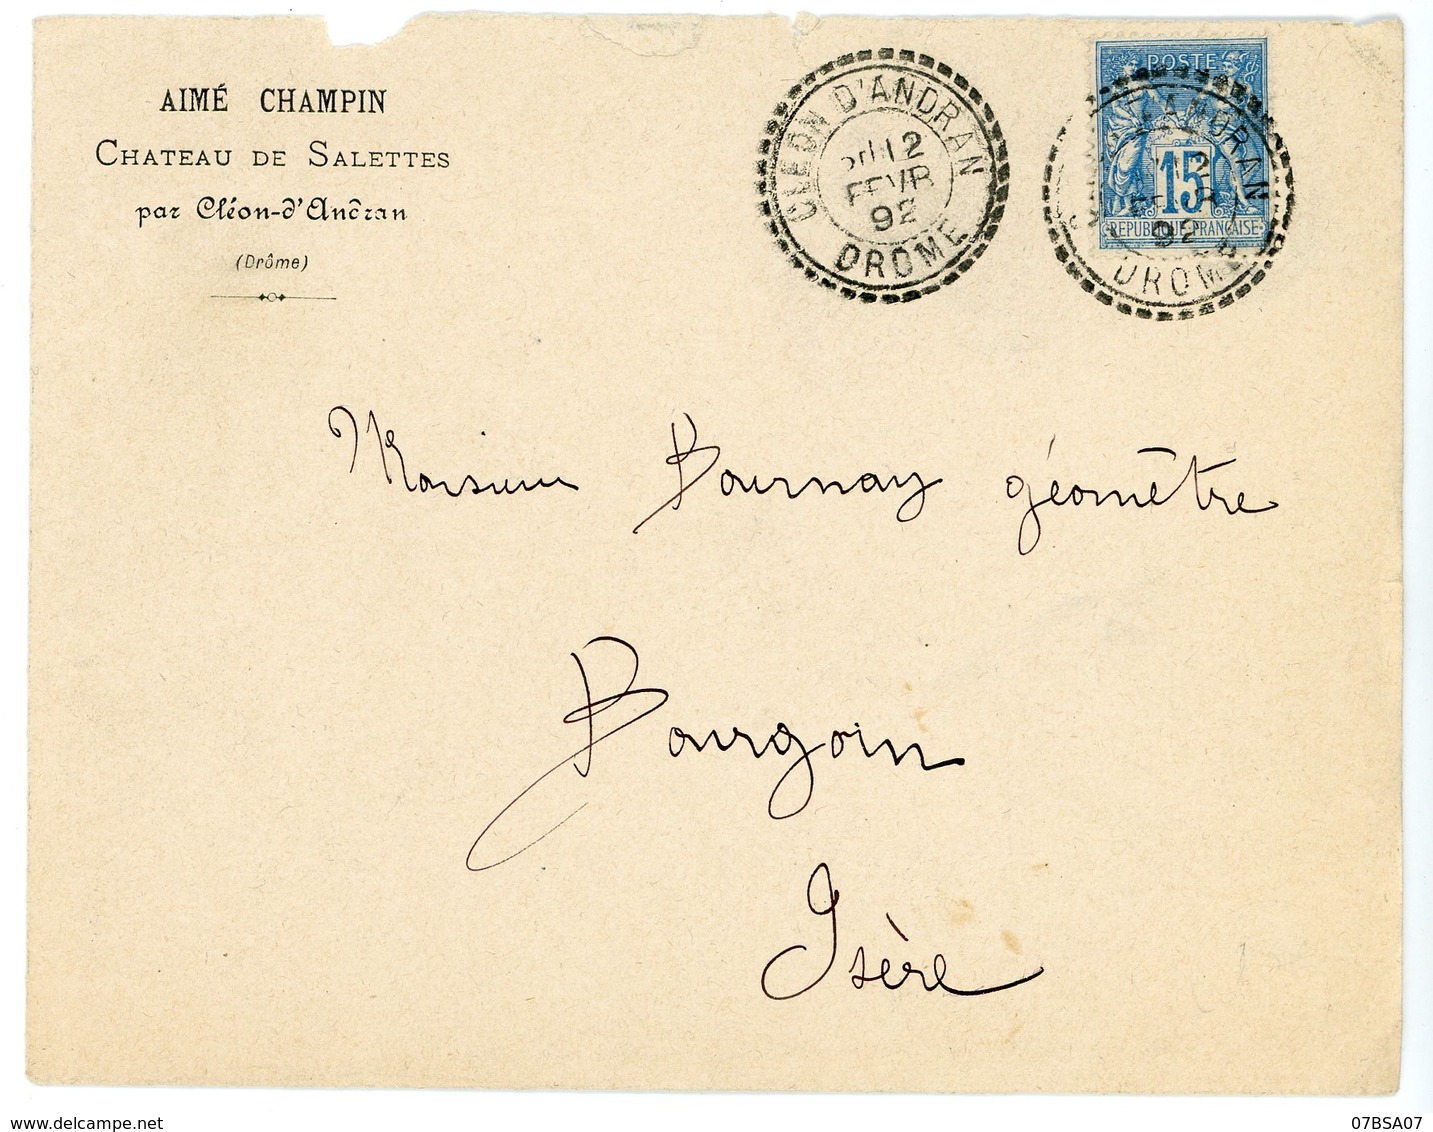 AIMÉ CHAMPIN
CHATEAU DE SALETTES
par Cléon-d'Andran
(Drôme)
CLEON D'ANDRAN
12
FEVR
92
DROME
POSTE
15
REPUBLIQUE FRANÇAISE
92
DROME
Monsieur Bournay géomètre
Bourgoin
Isère
www.delcampe.net
07BSA07